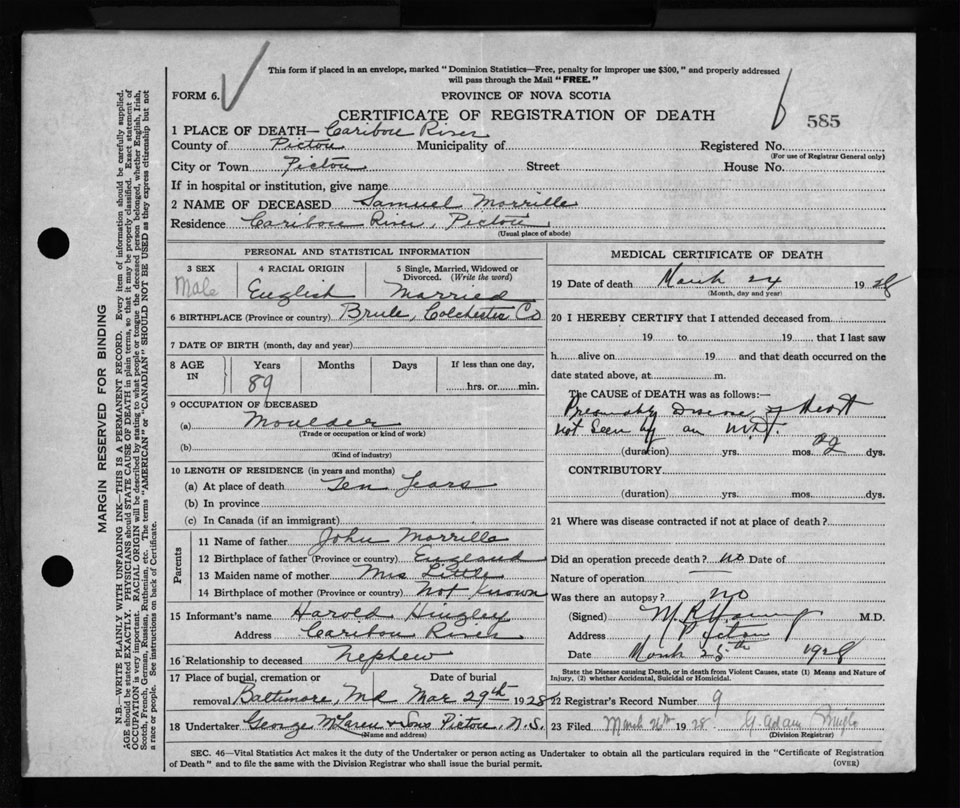 This form if placed in an envelope, marked "Dominion Statistics—Free, penalty for improper use $300," and properly addressed
will pass through the Mail "FREE."
FORM 6.
PROVINCE OF NOVA SCOTIA
CERTIFICATE OF REGISTRATION OF DEATH
585
1 PLACE OF DEATH— Caribou River
County of Pictou Municipality of Registered No.
(For use of Registrar General only)
City or Town Pictou Street House No.
If in hospital or institution, give name
2 NAME OF DECEASED Samuel Morrille
Residence Caribou River, Pictou
(Usual place of abode)
PERSONAL AND STATISTICAL INFORMATION
3 SEX 4 RACIAL ORIGIN 5 Single, Married, Widowed or
Divorced. (Write the word)
Male English Married
6 BIRTHPLACE (Province or country) Brule, Colchester Co
7 DATE OF BIRTH (month, day and year)
8 AGE IN Years Months Days If less than one day,
89 hrs. or min.
9 OCCUPATION OF DECEASED
(a) Moulder
(Trade or occupation or kind of work)
(b)
(Kind of industry)
10 LENGTH OF RESIDENCE (in years and months)
(a) At place of death Ten Years
(b) In province
(c) In Canada (if an immigrant)
Parents
11 Name of father John Morrille
12 Birthplace of father (Province or country) England
13 Maiden name of mother Mrs Little
14 Birthplace of mother (Province or country) Not Known
15 Informant's name Harold Hingley
Address Caribou River
16 Relationship to deceased Nephew
17 Place of burial, cremation or Date of burial
removal Baltimore, Md Mar 29th 1928
18 Undertaker George McLaren & Sons Pictou, N.S.
(Name and address)
MEDICAL CERTIFICATE OF DEATH
19 Date of death March 24 1928
(Month, day and year)
20 I HEREBY CERTIFY that I attended deceased from
19 to 19 that I last saw
h alive on 19 and that death occurred on the
date stated above, at m.
The CAUSE OF DEATH was as follows:—
Presumably Disease of Heart
Not Seen by an M.D.
(duration) yrs. mos. dys.
CONTRIBUTORY
(duration) yrs. mos. dys.
21 Where was disease contracted if not at place of death?
Did an operation precede death? No Date of
Nature of operation
Was there an autopsy? No
(Signed) M.D.
Address Pictou
Date March 25th 1928
State the Disease causing Death, or in death from Violent Causes, state (1) Means and Nature of
Injury, (2) whether Accidental, Suicidal or Homicidal.
22 Registrar's Record Number 9
23 Filed March 26th 1928 G. Adam
(Division Registrar)
SEC. 46—Vital Statistics Act makes it the duty of the Undertaker or person acting as Undertaker to obtain all the particulars required in the "Certificate of Registration
of Death" and to file the same with the Division Registrar who shall issue the burial permit. (OVER)
MARGIN RESERVED FOR BINDING
N.B.—WRITE PLAINLY WITH UNFADING INK—THIS IS A PERMANENT RECORD. Every item of information should be carefully supplied.
AGE should be stated EXACTLY. PHYSICIANS should STATE CAUSE OF DEATH in plain terms, so that it may be properly classified. Exact statement of
OCCUPATION is very important. RACIAL ORIGIN will be described by stating to what people or tongue the deceased person belonged, whether English, Irish,
Scotch, French, German, Russian, Ruthenian, etc. The terms "AMERICAN" or "CANADIAN" SHOULD NOT BE USED as they express citizenship but not
a race or people. See instructions on back of Certificate.